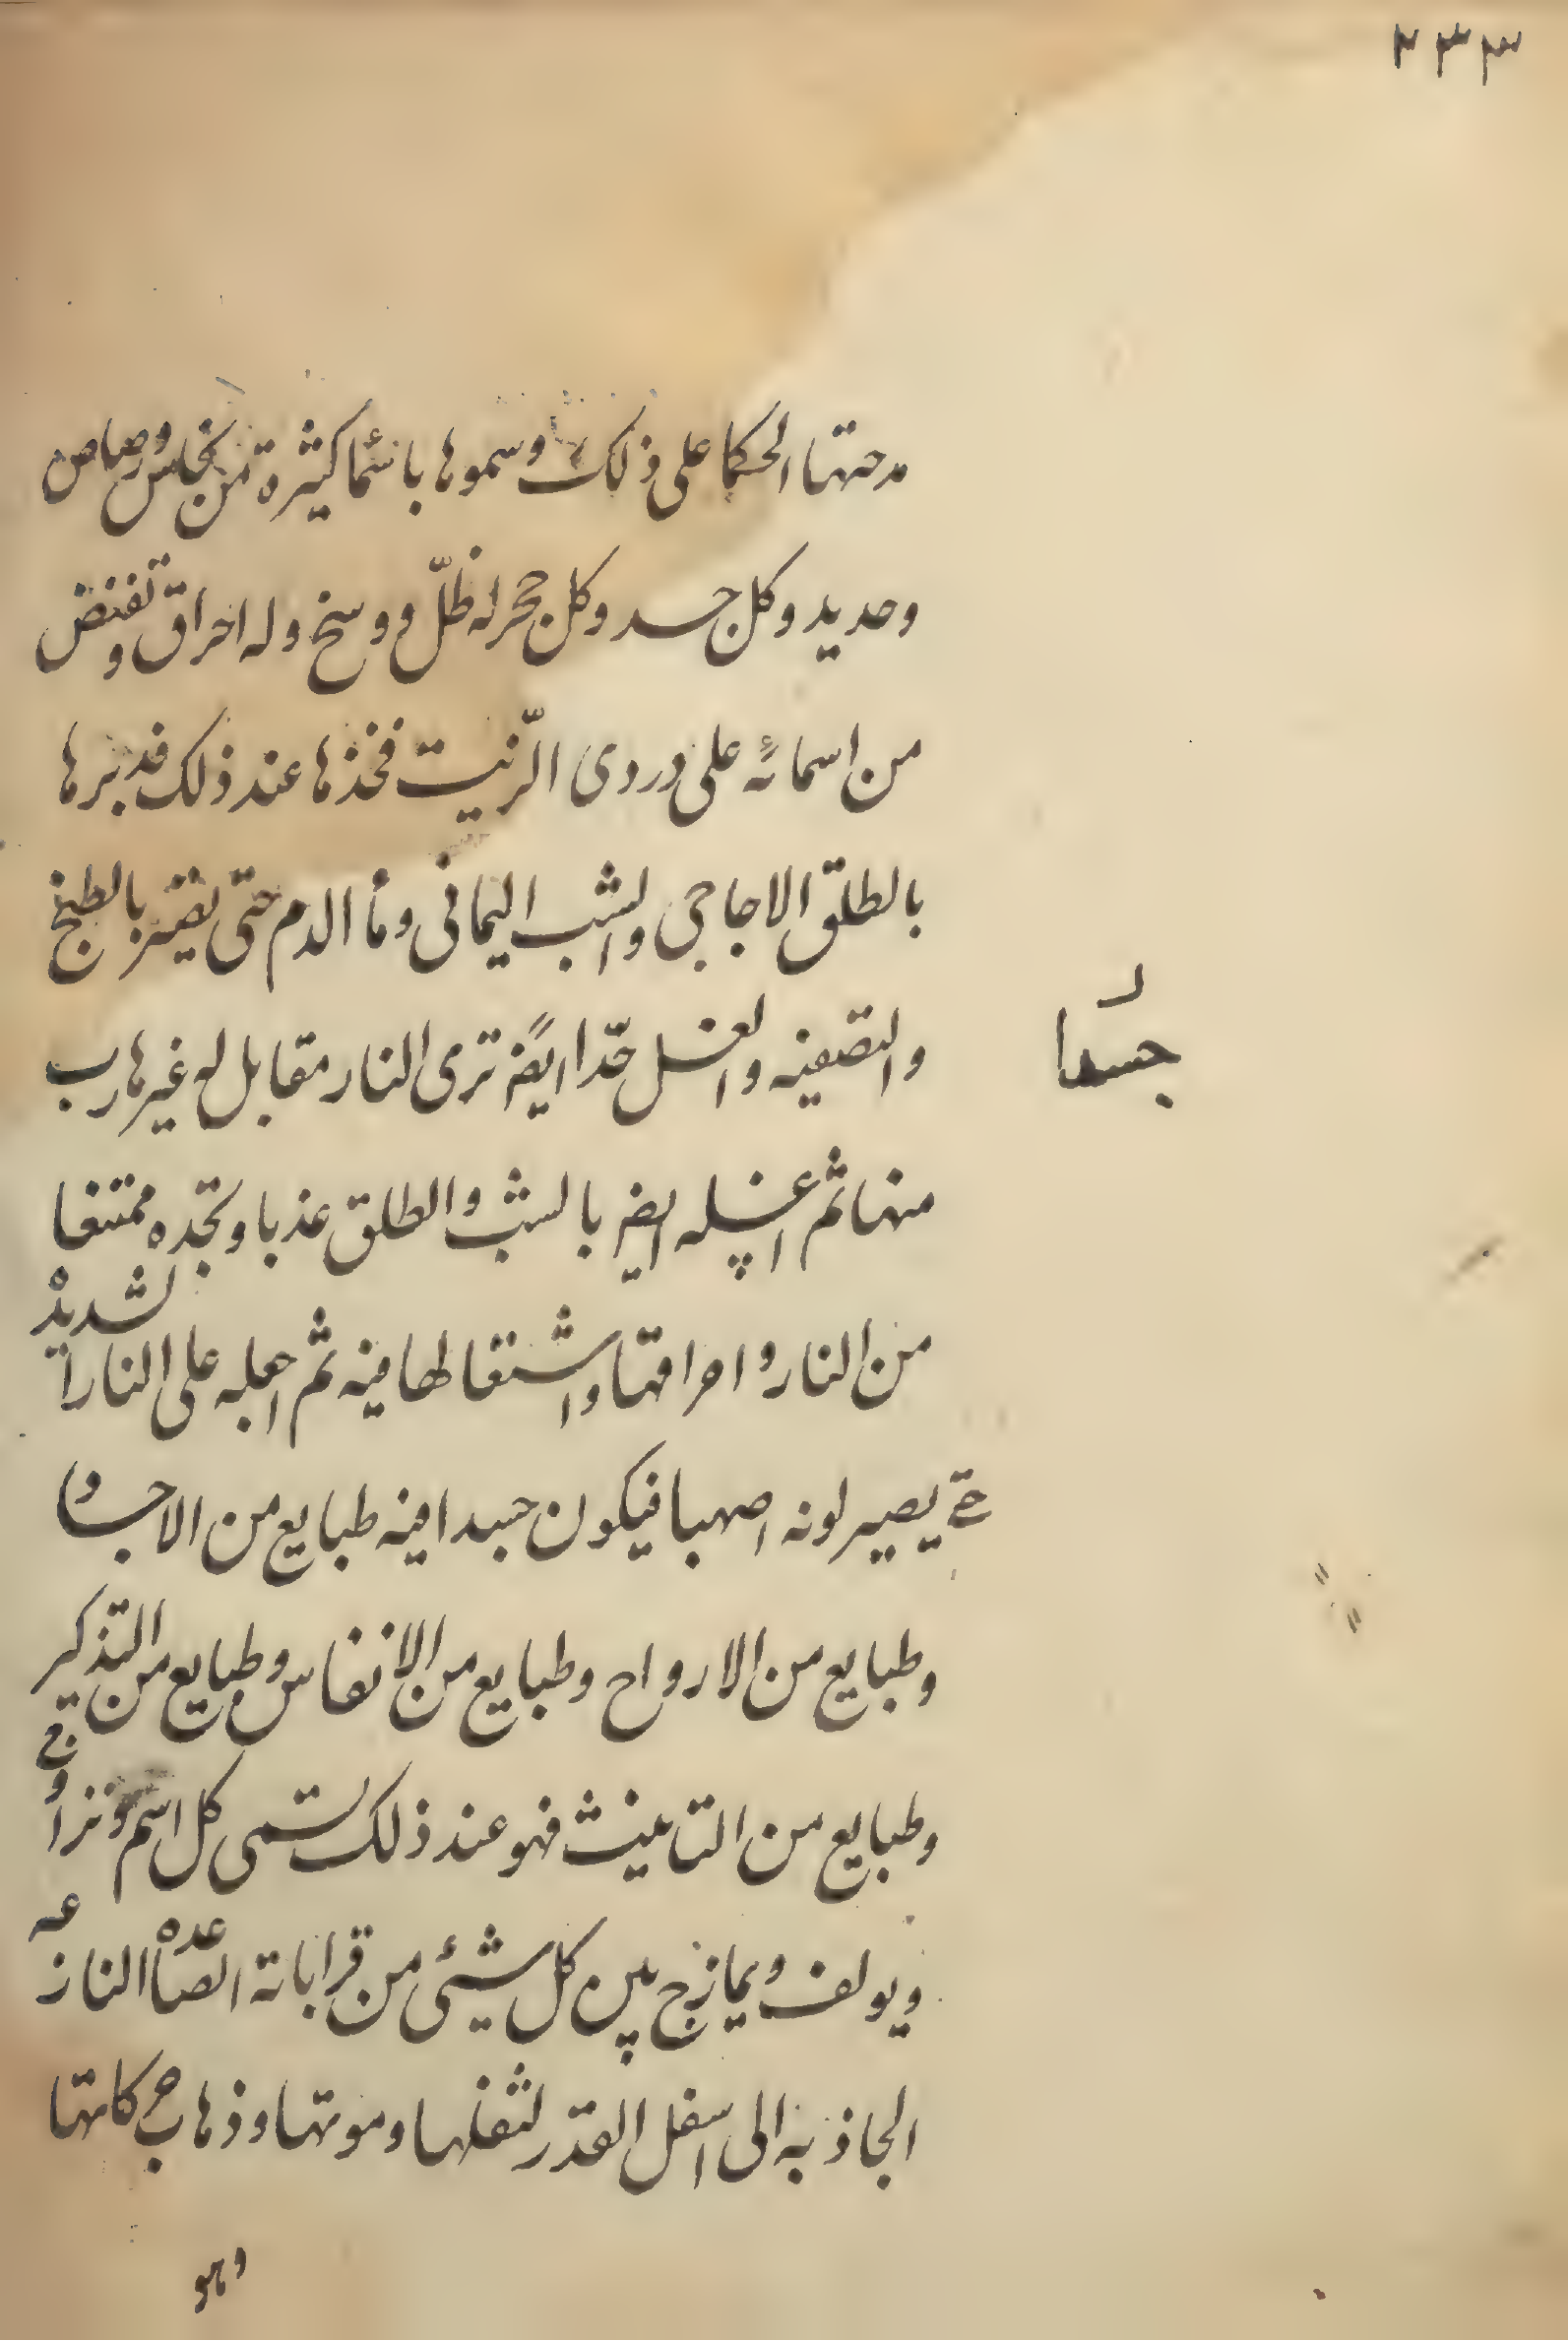 ٢٣٣
مدحتها الحكما على ذلك وسموها باسما كثيرة من نحاس ورصاص
وحديد وكل جسد وكل حجر له ظلّ ووسخ وله احراق
من اسمائه على دردى الزّيت فخذها عند ذلك فدبرها
بالطلق الاجاجى والشب اليمانى وماء الدم حتى بالطبخ
والتصفيه والغسل ترى النار مقابل له غير هارب
جسدا
منها ثم اغسله ايض بالشب والطلق عذبا وتجده ممتنعا
من النار واحراقها واشتعالها فيه ثم اجعله على النار الشديد
حتى يصير لونه اصهبا فيكون جسدا فيه طبايع من الاجساد
وطبايع من الارواح وطبايع من الانفاس وطبايع من التذكير
وطبايع من التانيث فهو عند ذلك تسمى كل اسم
ويولف ويمازج بين كل شيئى من قراباته الصاعده النازعه
الجاذبه الى اسفل القدر لثفلها وموتها وذهاب حركاتها
وهو